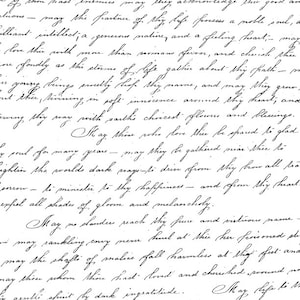 may they acknowledge thy good and
— may the partner of thy life possess a noble soul, a
brilliant intellect, a generous nature, and a feeling heart; — may
love thee with more than woman fervor, and cherish thee
fondly as the storms of life gather about thy path — may
young beings sweetly lisp thy name, and may they grow
about thee, twining in soft innocence around thy heart, and
thy way with earths choicest flowers and blessings.
May those who love thee be spared to glad
soul for many years — may they be gathered near thee to
brighten the worlds dark rage to drive from thy brow all tra
sorrow — to minister to thy happiness — and from thy heart
expel all shade of gloom and melancholy.
May no slander reach thy pure and virtuous name —
may rankling envy never hurl at thee her poisoned
may the shafts of malice fall harmless at thy feet and
may those whom thou hast loved and cherished around
spirit by dark ingratitude. May life to th